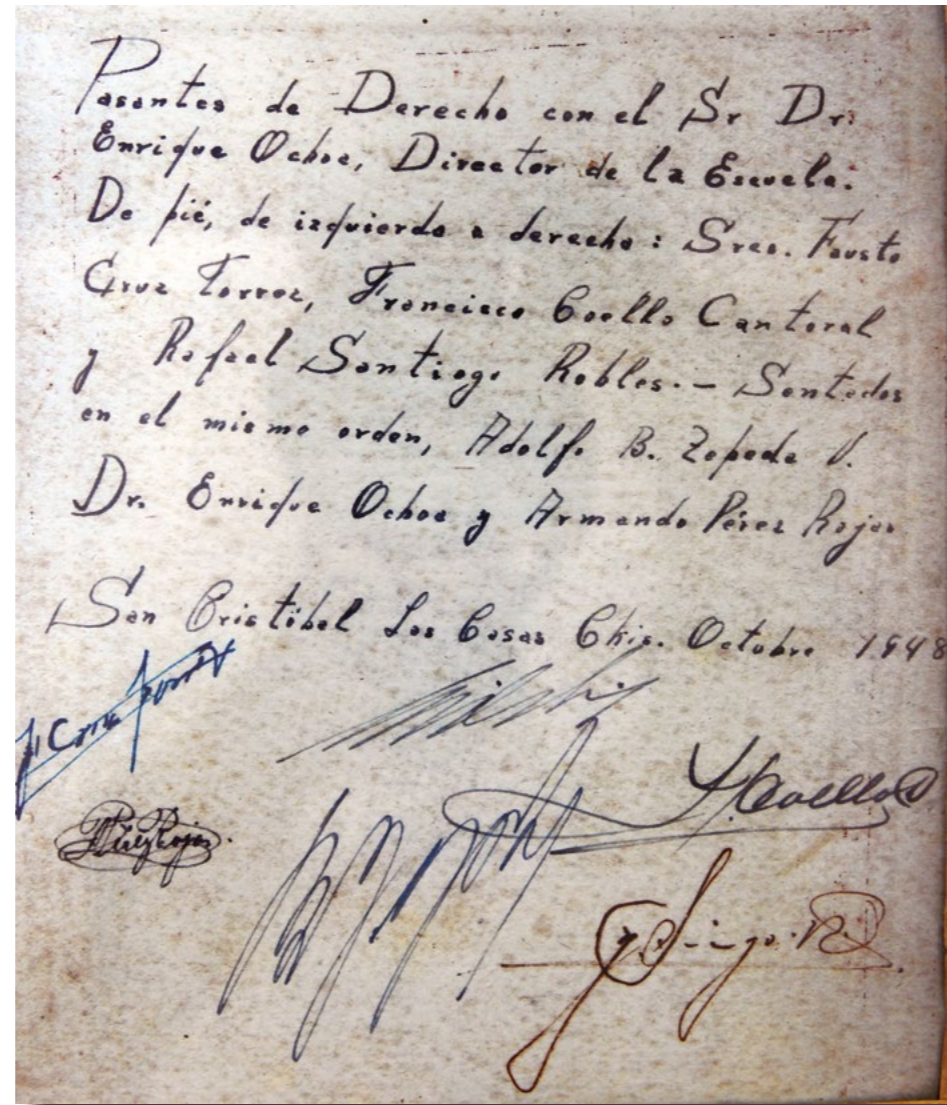 Pasantes de Derecho con el Sr Dr.
Enrique Ochoa, Director de la Escuela.
De pié, de izquierda a derecha: Sres. Fausto
Cruz Torres, Francisco Coello Cantoral
y Rafael Santiago Robles.- Sentados
en el mismo orden, Adolfo B. Zepeda V.
Dr. Enrique Ochoa y Armando Pérez Rojas
San Cristóbal Las Casas Chis. Octubre 1948
F Cruz Torres
F. Coello C
Pérez Rojas.